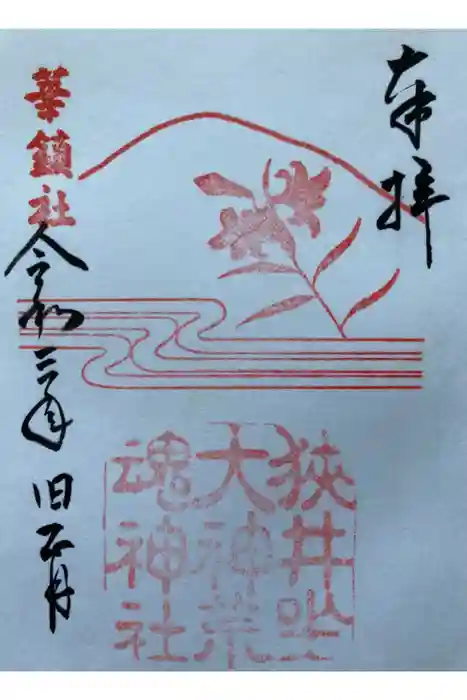 奉拝
狭井坐
大神荒
魂神社
華鎮社
令和三年旧正月